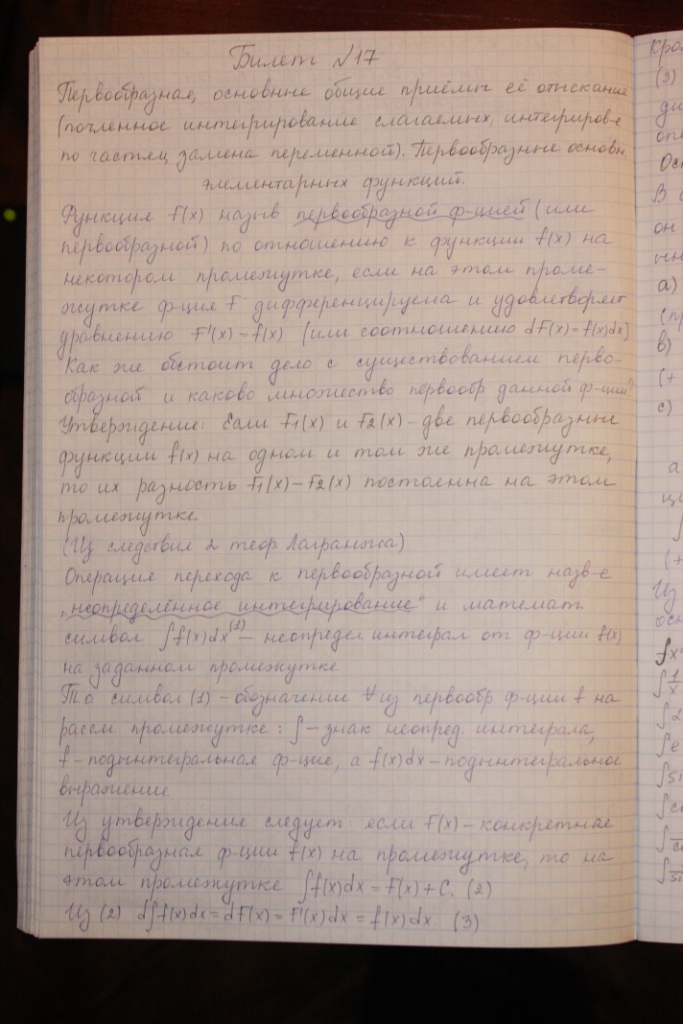 Билет №17
Первообразная, основные общие приёмы её отыскания
(почленное интегрирование слагаемых, интегриров-е
по частям, замена переменной). Первообразные основн.
элементарных функций.
Функция F(x) назыв первообразной ф-цией (или
первообразной) по отношению к функции f(x) на
некотором промежутке, если на этом проме-
жутке ф-ция F дифференцируема и удовлетворяет
уравнению F'(x) = f(x) (или соотношению dF(x) = f(x)dx)
Как же обстоит дело с существованием перво-
образной и каково множество первообр данной ф-ции?
Утверждение: Если F1(x) и F2(x) – две первообразные
функции f(x) на одном и том же промежутке,
то их разность F1(x) – F2(x) постоянна на этом
промежутке.
(Из следствия 2 теор Лагранжа)
Операция перехода к первообразной имеет назв-е
„неопределённое интегрирование" и математ.
символ ∫f(x)dx (1) – неопредел интеграл от ф-ции f(x)
на заданном промежутке
То символ (1) – обозначение ∀ из первообр ф-ции f на
рассм промежутке: ∫ – знак неопред. интеграла,
f – подынтегральная ф-ция, а f(x)dx – подынтегральное
выражение.
Из утверждения следует: если F(x) – конкретная
первообразная ф-ции f(x) на промежутке, то на
этом промежутке ∫f(x)dx = F(x) + C. (2)
Из (2) d∫f(x)dx = dF(x) = F'(x)dx = f(x)dx. (3)
(3)
а)
в)
(+
с)
а
∫
(+
Из
∫1/x
∫e